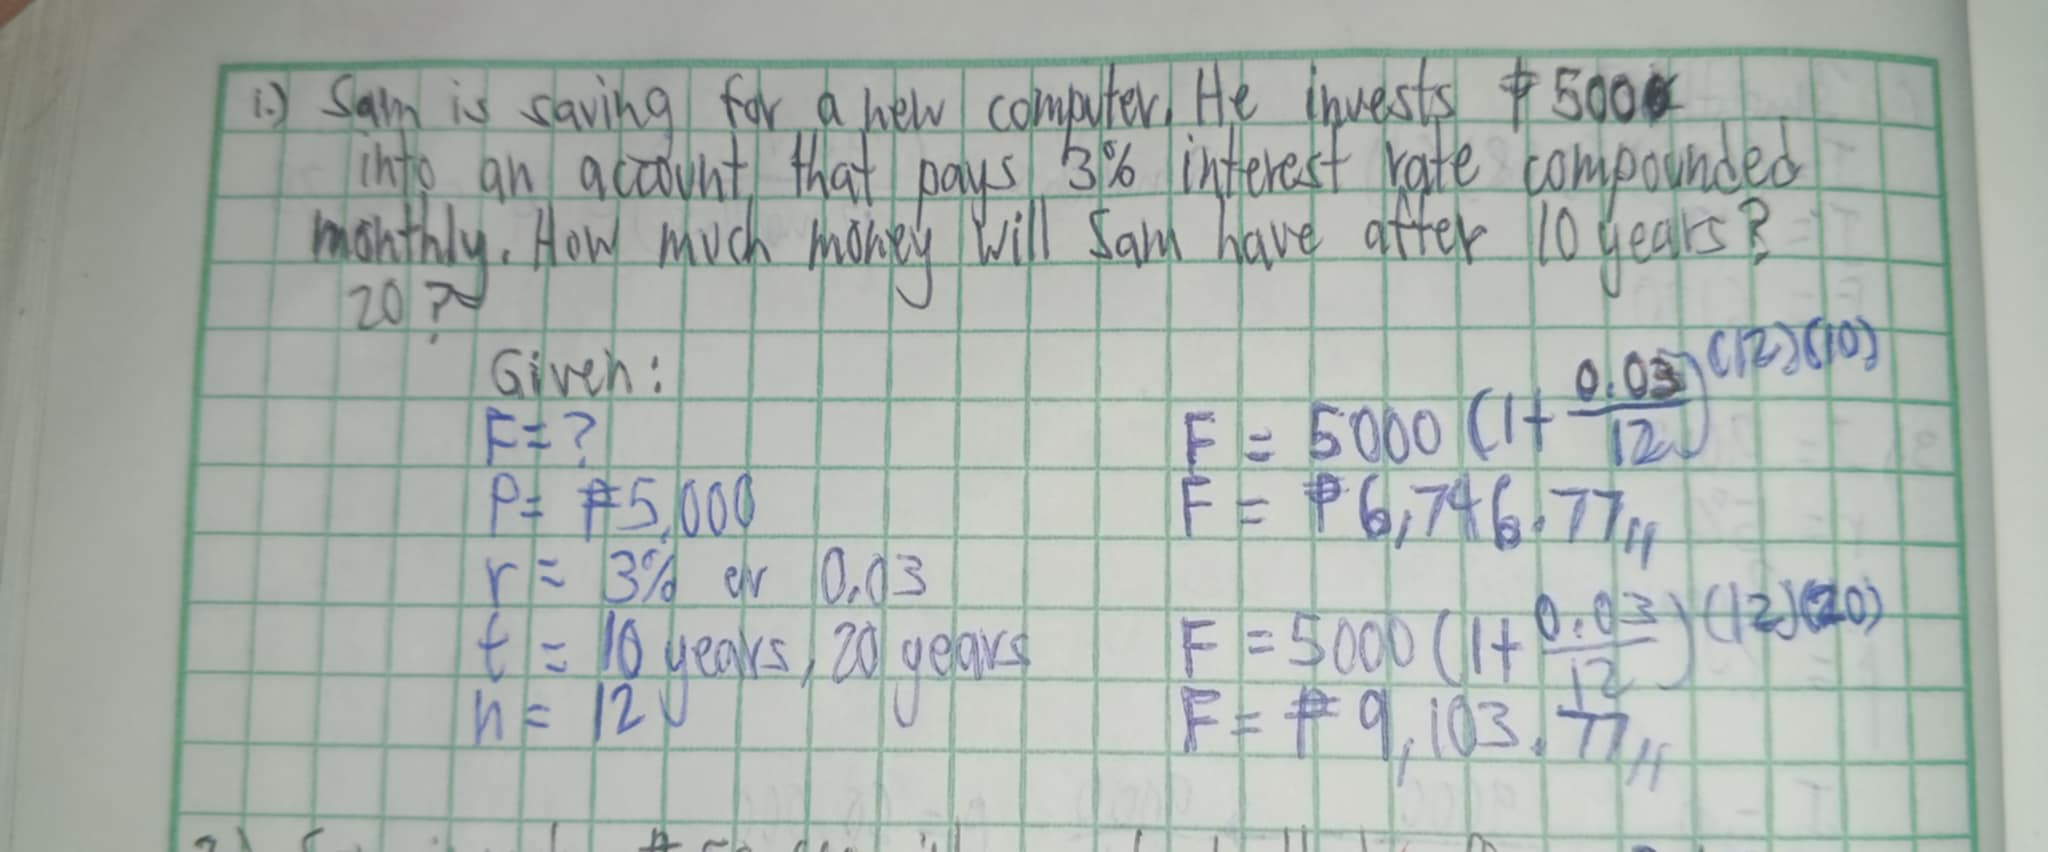 1.) Sam is saving for a new computer. He invests ₱5000
into an account that pays 3% interest rate compounded
monthly. How much money will Sam have after 10 years?
20?
Given:
F=?
P= ₱5,000
r = 3% or 0.03
t = 10 years, 20 years
n = 12
F = 5000 (1+ 0.03/12)^(12)(10)
F = ₱6,746.77//
F = 5000 (1+ 0.03/12)^(12)(20)
F = ₱9,103.77//